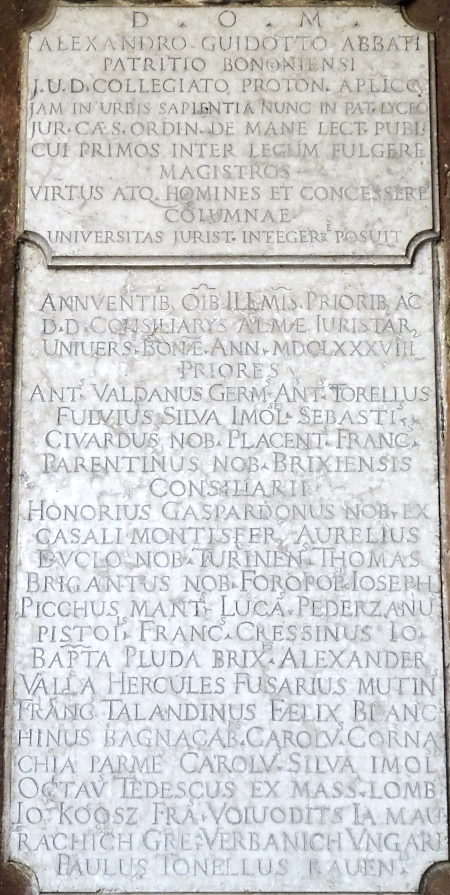 D. O. M.
ALEXANDRO GUIDOTTO ABBATI
PATRITIO BONONIENSI
J.U.D. COLLEGIATO PROTON. APLICO
JAM IN URBIS SAPIENTIA NUNC IN PAT. LYCEO
JUR. CÆS. ORDIN. DE MANE LECT. PUBL.
CUI PRIMOS INTER LEGUM FULGERE
MAGISTROS
VIRTUS ATQ. HOMINES ET CONCESSERE
COLUMNAE
UNIVERSITAS JURIST. INTEGERE POSUIT
ANNVENTIB. OIB. ILLMIS. PRIORIB. AC
D. D. CONSILIARYS ALMÆ IURISTAR.
UNIUERS. BONÆ. ANN. MDCLXXXVIII.
PRIORES
ANTs. VALDANUS GERM. ANTs. TORELLUS
FULVIUS SILVA IMOLs. SEBASTs.
CIVARDUS NOB. PLACENT. FRANC.
PARENTINUS NOB. BRIXIENSIS
CONSILIARII
HONORIUS GASPARDONUS NOB. EX
CASALI MONTISFER. AURELIUS
NOB. TURINEN. THOMAS
BRIGANTUS NOB. FOROPOP. IOSEPH
PICCHUS MANTs. LUCAs. PEDERZANU
PISTOIs. FRANCs. CRESSINUS IO.
BAPTA PLUDA BRIXs. ALEXANDER
VALLA HERCULES FUSARIUS MUTIN
FRANC TALANDINUS FÆLIX BIANC
HINUS BAGNACAB. CAROLVs. CORNA
CHIA PARMÆ CAROLVs. SILVA IMOL
OCTAV TEDESCUS EX MASS. LOMB
IO. FRA. IA MAU
GRE. VERBANICH VNGARI
PAULUS TONELLUS RAUEN.